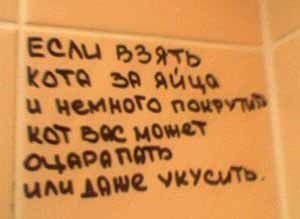 ЕСЛИ ВЗЯТЬ
КОТА ЗА ЯЙЦА
И НЕМНОГО ПОКРУТИТЬ
КОТ ВАС МОЖЕТ
ОЦАРАПАТЬ
ИЛИ ДАЖЕ УКУСИТЬ.